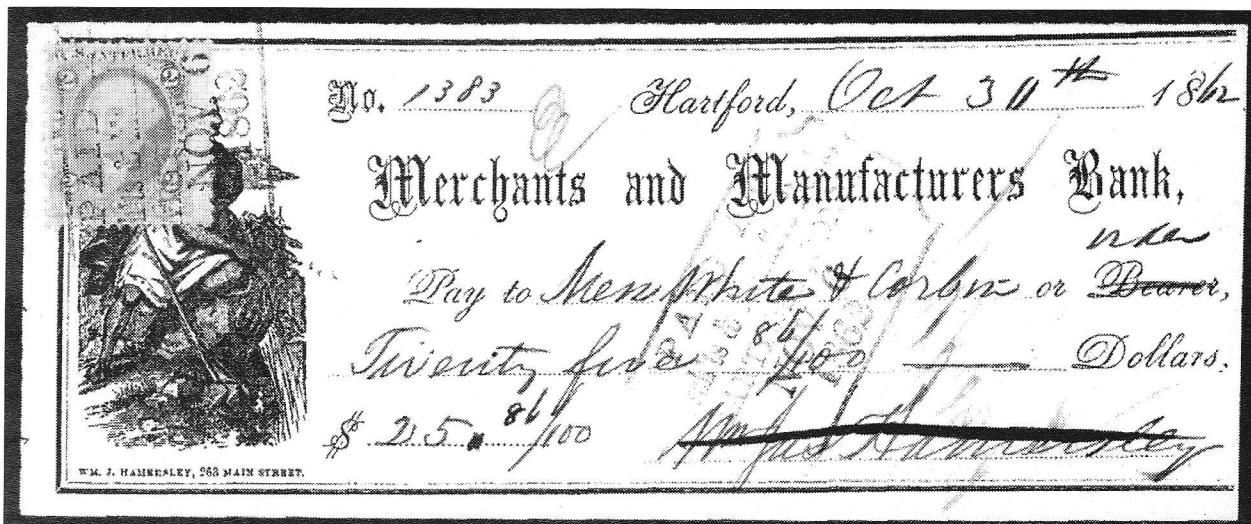 No. 1383 Hartford, Oct 30th 1862
Merchants and Manufacturers Bank,
order
Pay to Mess White & Corbin or Bearer,
Twenty five 86/100 Dollars.
$ 25. 86/100 Wm Jas Hamersley
WM. J. HAMERSLEY, 263 MAIN STREET.
PAID
NOV